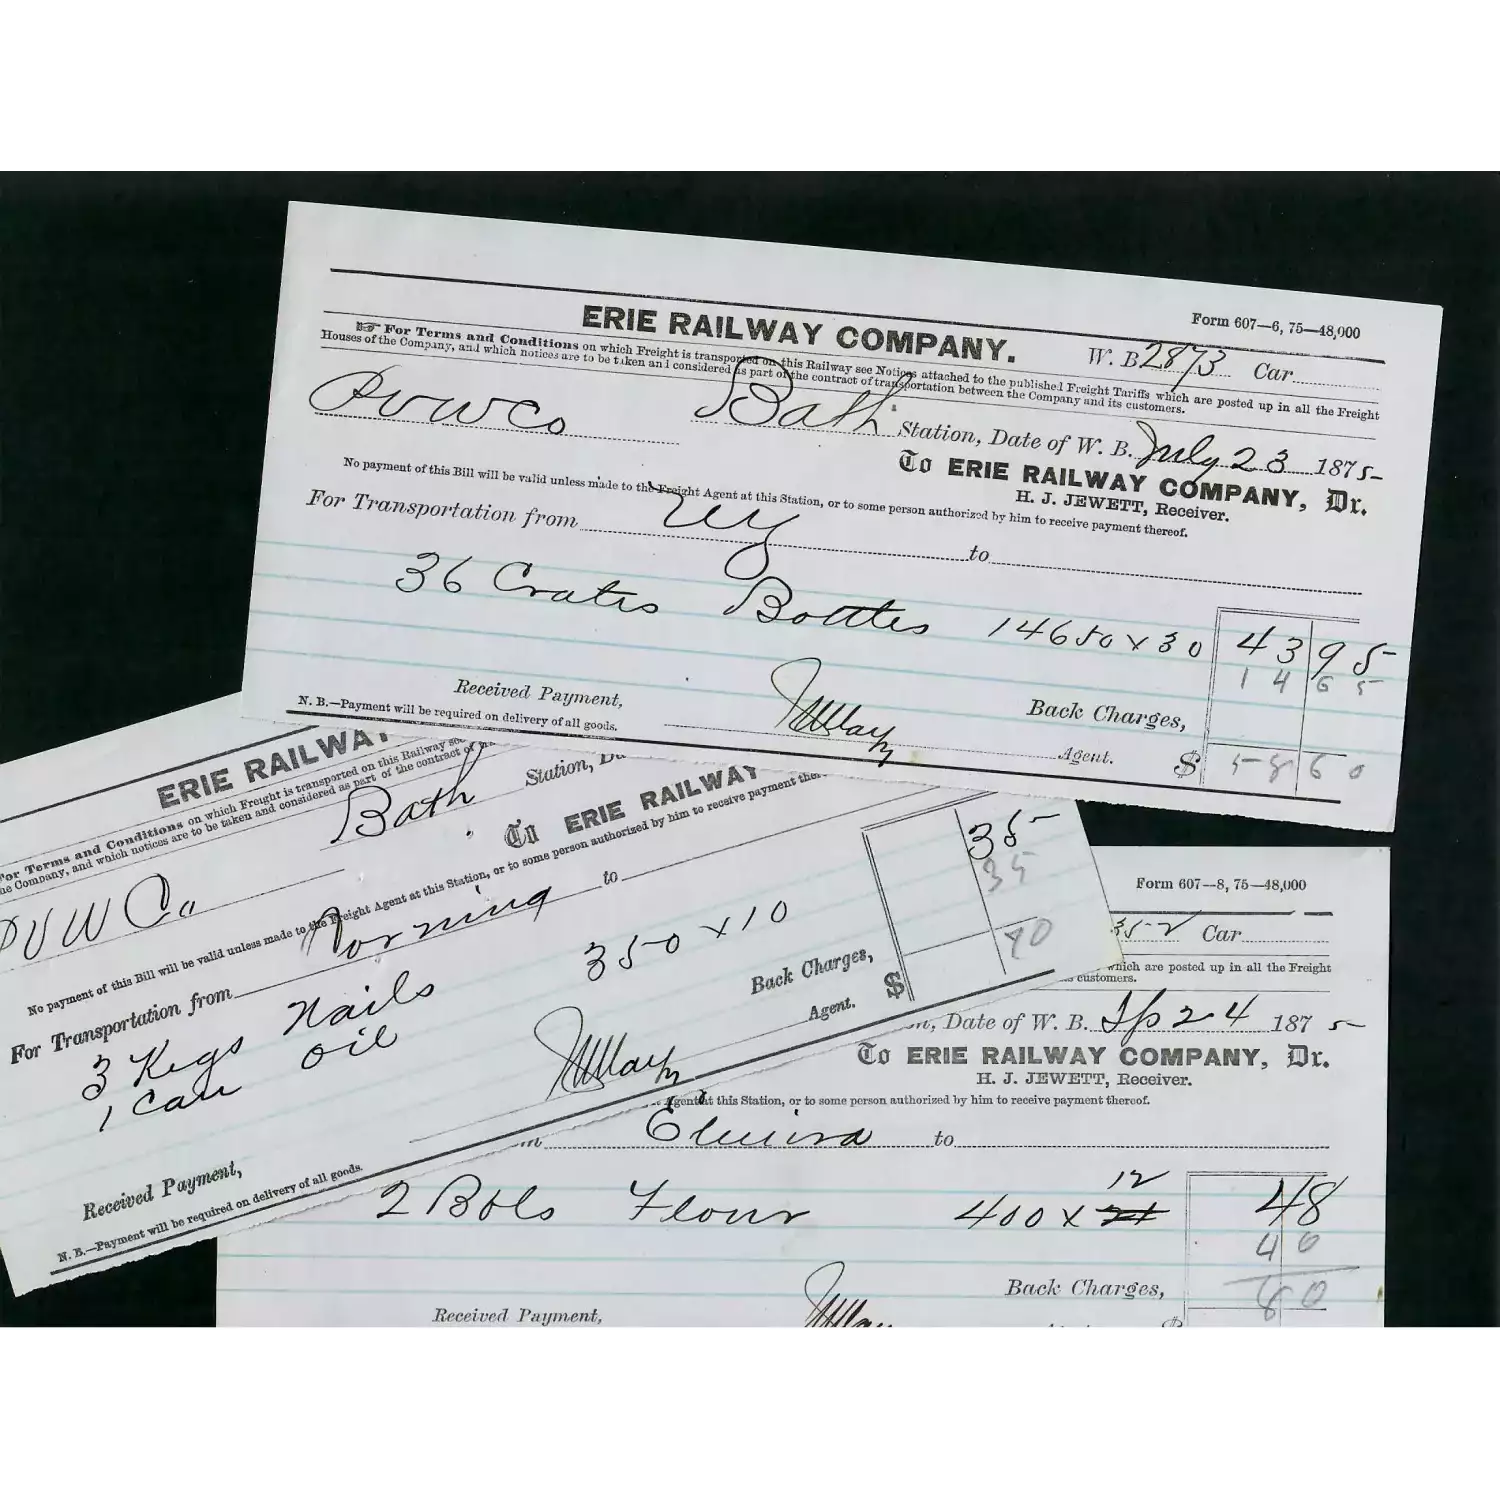 ERIE RAILWAY COMPANY.
Form 607—6, 75—48,000
W. B. 2873 Car
☞ For Terms and Conditions on which Freight is transported on this Railway see Notices attached to the published Freight Tariffs which are posted up in all the Freight
Houses of the Company, and which notices are to be taken and considered as part of the contract of transportation between the Company and its customers.
PVWCo Bath Station, Date of W. B. July 23 1875-
To ERIE RAILWAY COMPANY, Dr.
H. J. JEWETT, Receiver.
No payment of this Bill will be valid unless made to the Freight Agent at this Station, or to some person authorized by him to receive payment thereof.
For Transportation from to
36 Crates Bottles 14650 x 30 43 95
14 65
Received Payment, Back Charges,
N. B.—Payment will be required on delivery of all goods. Agent. $ 58 60
ERIE RAILWA
For Terms and Conditions on which Freight is transported on this Railway see
he Company, and which notices are to be taken and considered as part of the contract of
Bath Station, Da
PVWCo
To ERIE RAILWAY
No payment of this Bill will be valid unless made to the Freight Agent at this Station, or to some person authorized by him to receive payment ther
For Transportation from Corning to
3 Kegs Nails 350 x 10 35
1 Can Oil 35
Back Charges,
$ 70
Agent.
Received Payment,
N. B.—Payment will be required on delivery of all goods.
Form 607—8, 75—48,000
352 Car
which are posted up in all the Freight
customers.
n, Date of W. B. 24 1875-
To ERIE RAILWAY COMPANY, Dr.
H. J. JEWETT, Receiver.
Agent at this Station, or to some person authorized by him to receive payment thereof.
Elmira to
12
2 Bbls Flour 400 x 48
40
Back Charges, 80
Received Payment,